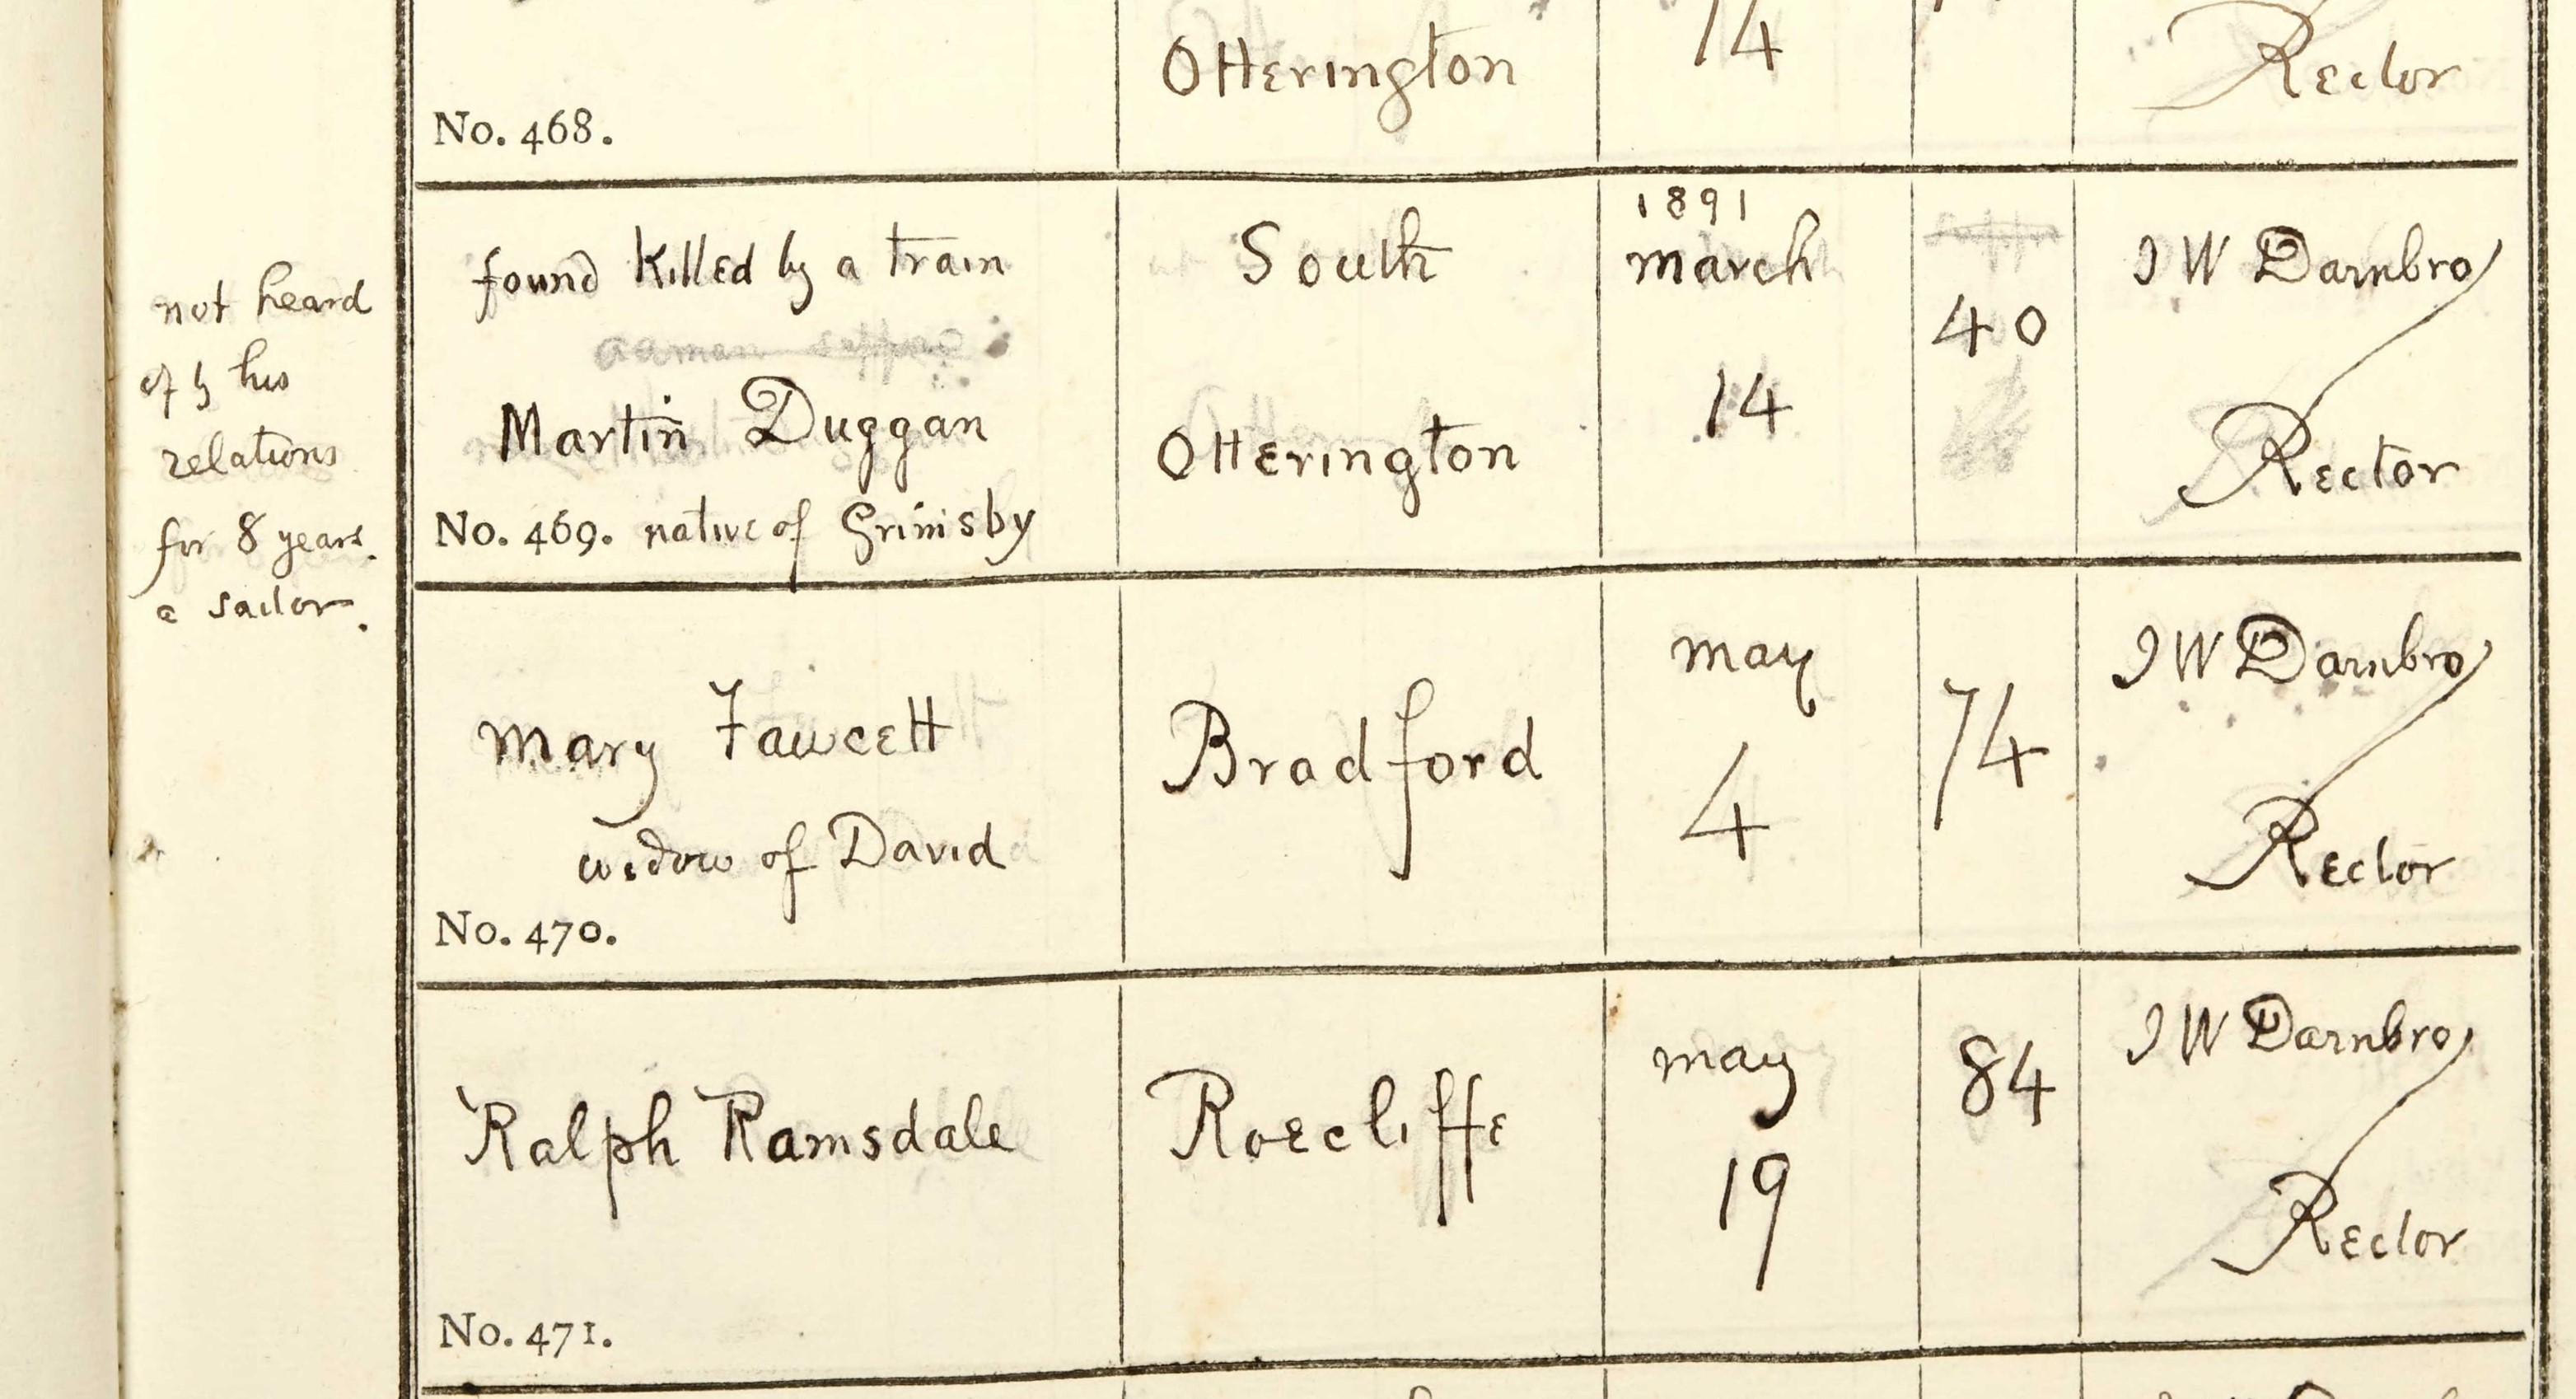 Otterington 14 Rector
No. 468.
not heard
of by his
relations
for 8 years.
a sailor.
found Killed by a train
Martin Duggan
No. 469. native of Grimsby
South
Otterington
1891
March
14
40
J W Darnbro
Rector
Mary Fawcett
widow of David
No. 470.
Bradford
May
4
74
J W Darnbro
Rector
Ralph Ramsdale
No. 471.
Roecliffe
May
19
84
J W Darnbro
Rector